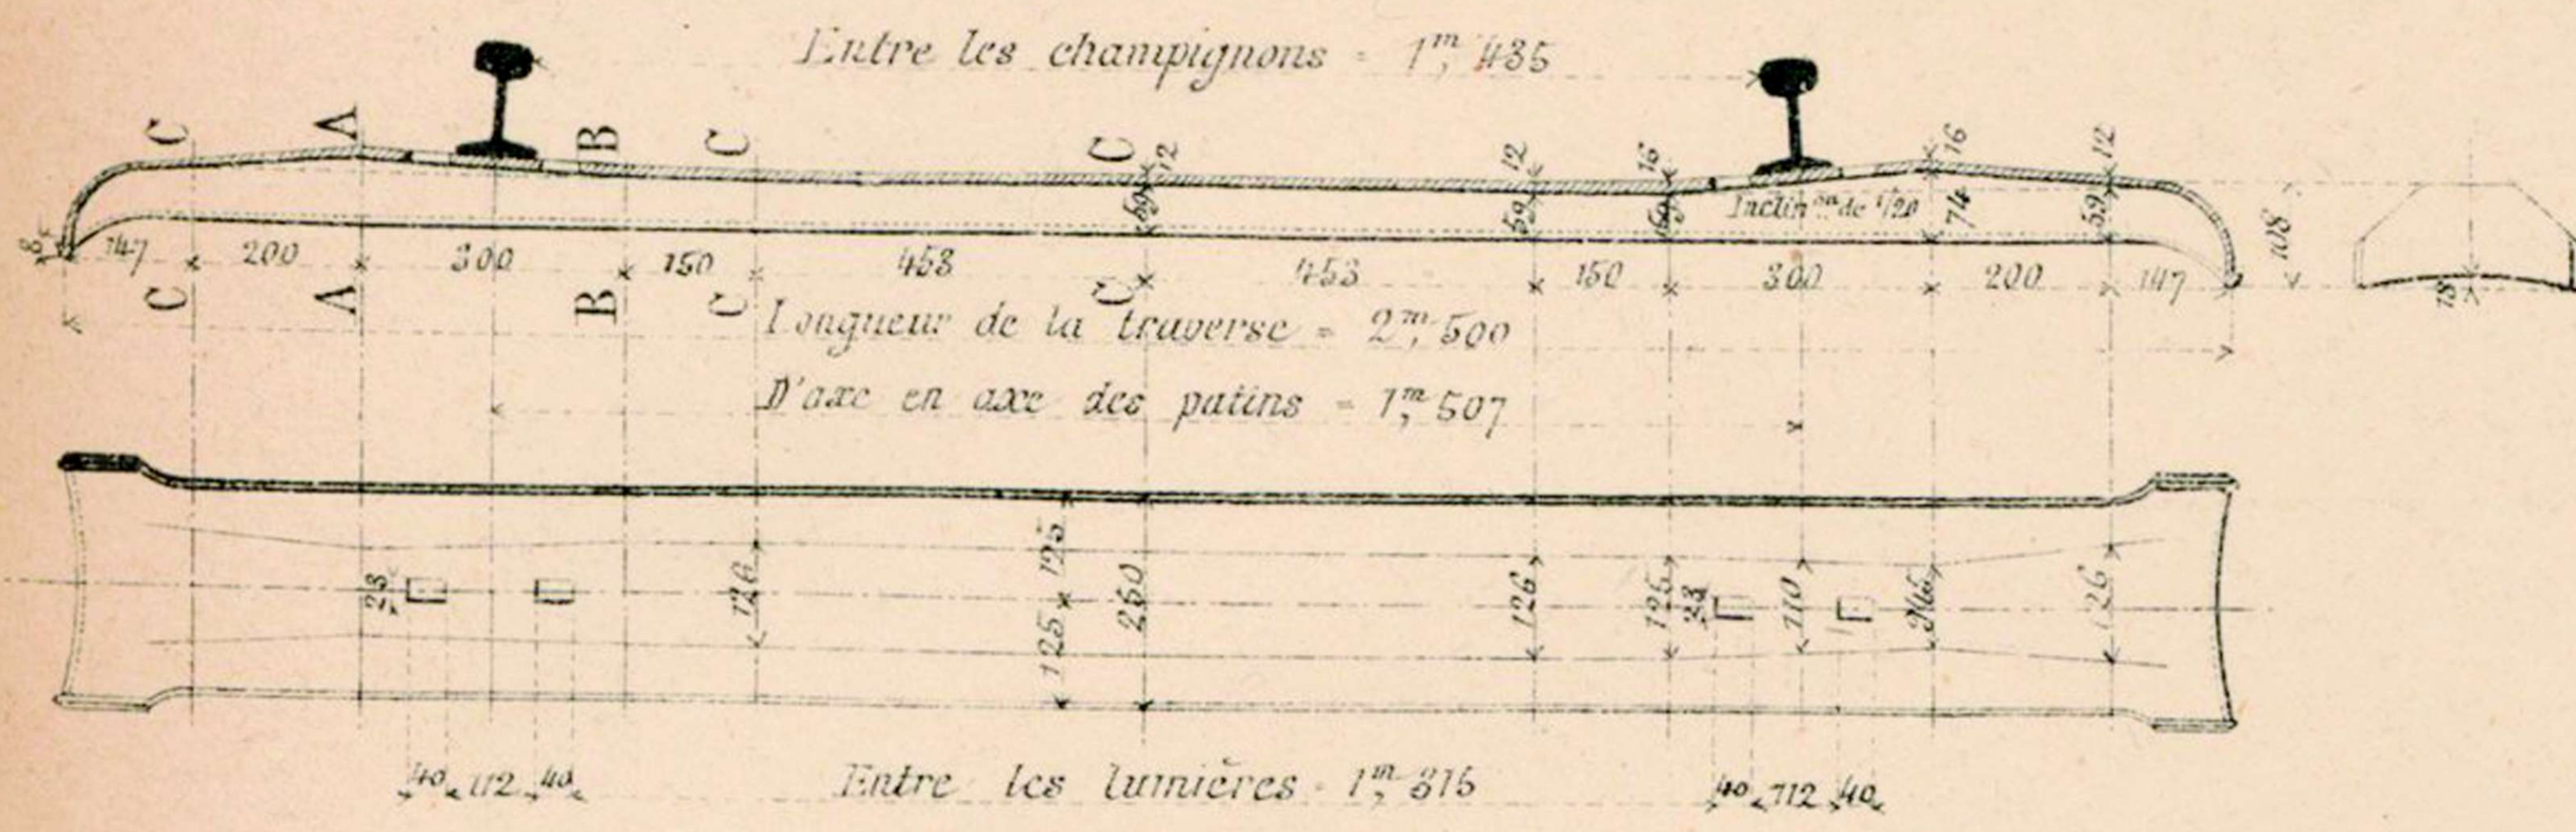 Entre les champignons = 1m,435
C A B C C 12 12 16 16 12
59 59 59 Inclinon de 1/20 74 59 108
147 200 300 150 453 453 150 300 200 147 18
C A B C C
Longueur de la traverse = 2m,500
D'axe en axe des patins = 1m,507
23 126 125 125 250 126 126 23 110 126
40 112 40 Entre les lumières = 1m,315 40 112 40